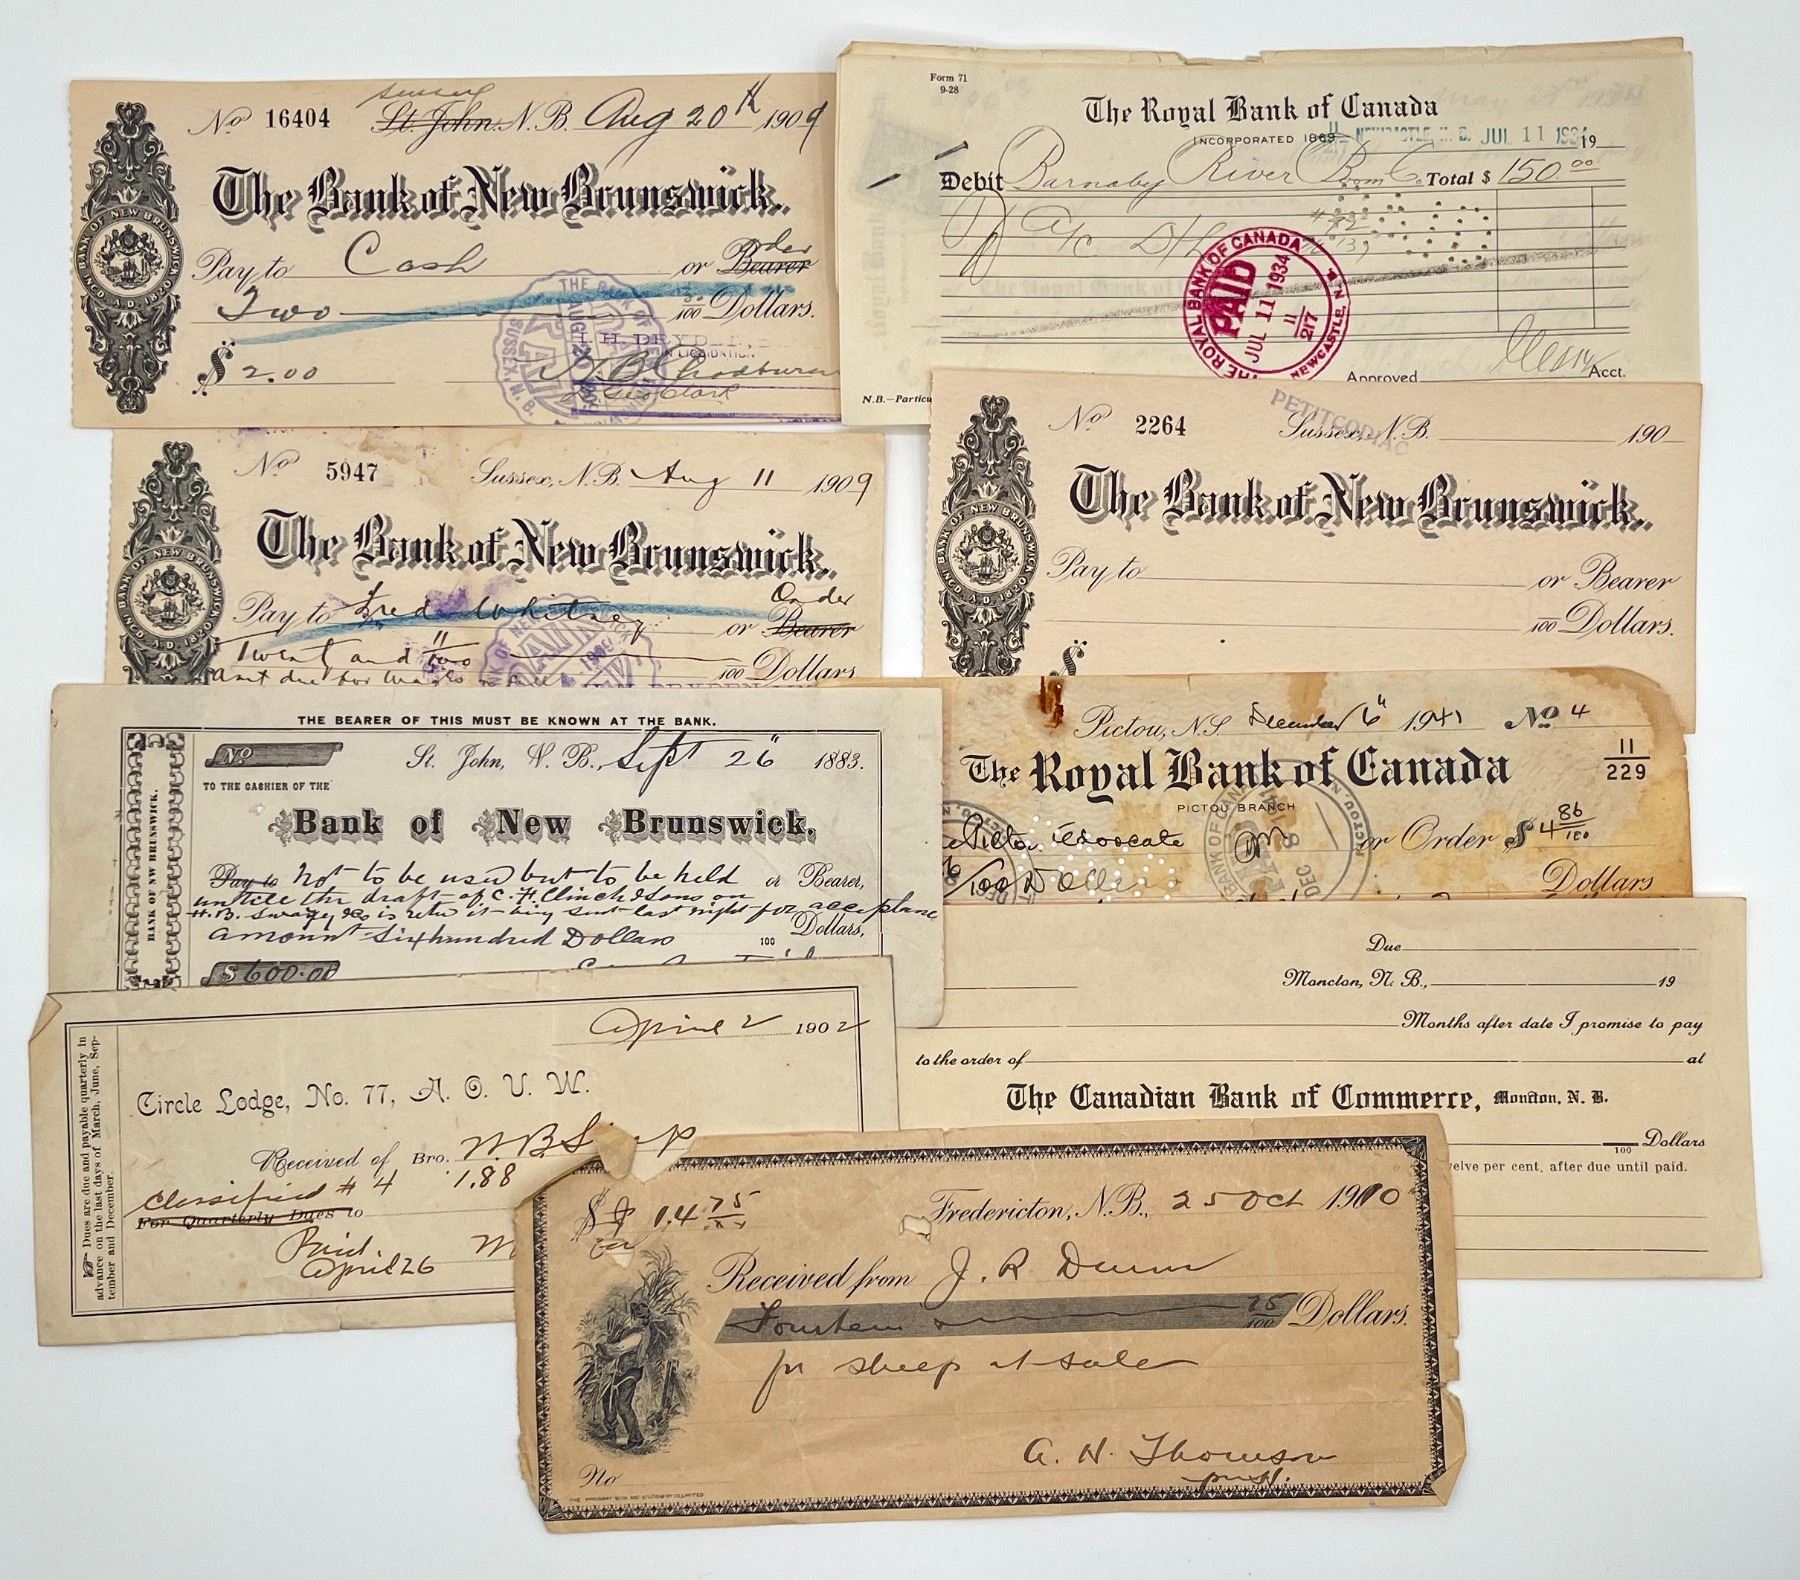 Sussex
No 16404 St. John, N.B. Aug 20th 1909
The Bank of New Brunswick.
Pay to Cash or Bearer Order
Two 00/100 Dollars.
$ 2.00
BANK OF NEW BRUNSWICK
INCD. A.D. 1820
IN LIQUIDATION
SUSSEX, N.B.
Geo Clark
Form 71
9-28
The Royal Bank of Canada
INCORPORATED 1869
NEWCASTLE, N. B. JUL 11 1934 19
Debit Barnaby River Boom Co. Total $ 150.00
THE ROYAL BANK OF CANADA
PAID
JUL 11 1934
11
217
NEWCASTLE, N.B.
Approved Acct.
N.B.—Particu
No 5947 Sussex, N.B. Aug 11 1909
The Bank of New Brunswick.
Pay to Fred Whitney or Bearer Order
Twenty and 100 Dollars
BANK OF NEW BRUNSWICK
INCD. A.D. 1820
PETITCODIAC
No 2264 Sussex, N.B. 190
The Bank of New Brunswick.
Pay to or Bearer
100 Dollars.
$
BANK OF NEW BRUNSWICK
INCD. A.D. 1820
THE BEARER OF THIS MUST BE KNOWN AT THE BANK.
No St. John, N. B., Sept 26" 1883.
TO THE CASHIER OF THE
Bank of New Brunswick.
Pay to not to be used but to be held or Bearer,
untill the draft of C. H. Clinch & Sons on
amount Six hundred Dollars 100 Dollars,
$ 600.00
BANK OF NW BRUNSWICK.
Pictou, N.S. December 6" 1941 No 4
The Royal Bank of Canada
11
229
PICTOU BRANCH
Pictou Advocate or Order $ 4 86/100
/100 Dollars Dollars
Due
Moncton, N. B., 19
Months after date I promise to pay
to the order of at
The Canadian Bank of Commerce, Moncton, N. B.
100 Dollars
welve per cent. after due until paid.
April 2 1902
Circle Lodge, No. 77, A. O. U. W.
Received of Bro. W. B. S
Classified # 4 1.88
For Quarterly Dues to
Paid
April 26
Dues are due and payable quarterly in
advance on the last days of March, June, Sep-
tember and December.
$ 14 75/xx Fredericton, N.B., 25 Oct 1910
Received from J. R. Dunn
Fourteen 75/100 Dollars.
for sheep at sale
A. N. Thomson
No